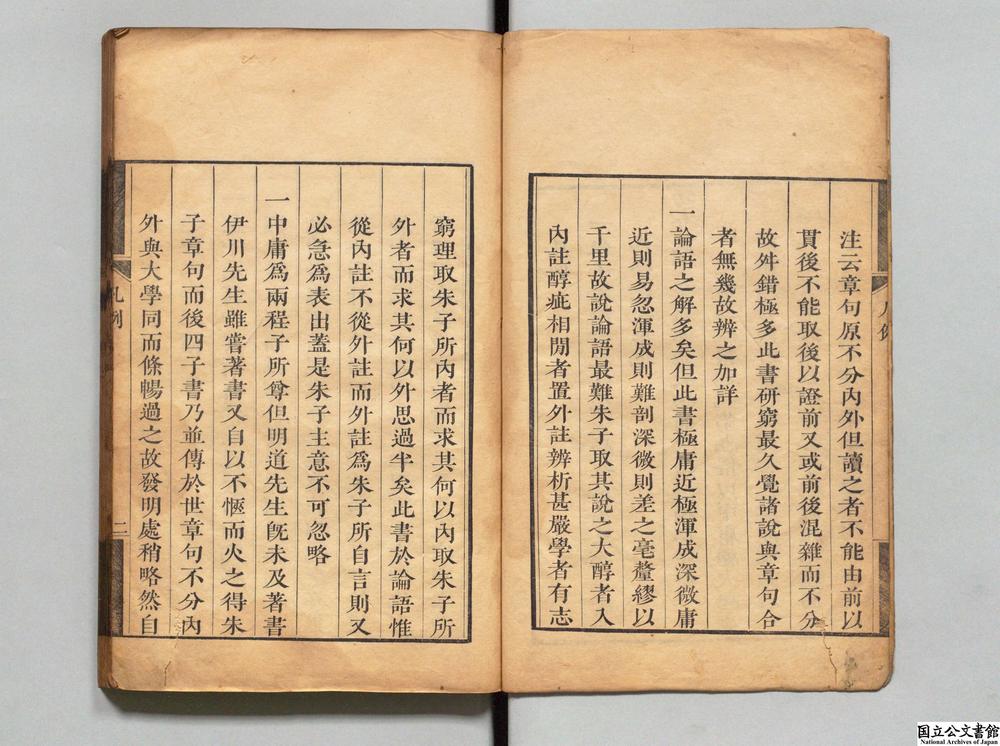 注云章句原不分內外但讀之者不能由前以
貫後不能取後以證前又或前後混雜而不分
故舛錯極多此書研窮最久覺諸說與章句合
者無幾故辨之加詳
一論語之解多矣但此書極庸近極渾成深微庸
近則易忽渾成則難剖深微則差之毫釐繆以
千里故說論語最難朱子取其說之大醇者入
內註醇疵相閒者置外註辨析甚嚴學者有志
窮理取朱子所內者而求其何以內取朱子所
外者而求其何以外思過半矣此書於論語惟
從內註不從外註而外註爲朱子所自言則又
必急爲表出蓋是朱子主意不可忽略
一中庸爲兩程子所尊但明道先生旣未及著書
伊川先生雖嘗著書又自以不愜而火之得朱
子章句而後四子書乃並傳於世章句不分內
外與大學同而條暢過之故發明處稍略然自
凡例
二
国立公文書館
National Archives of Japan